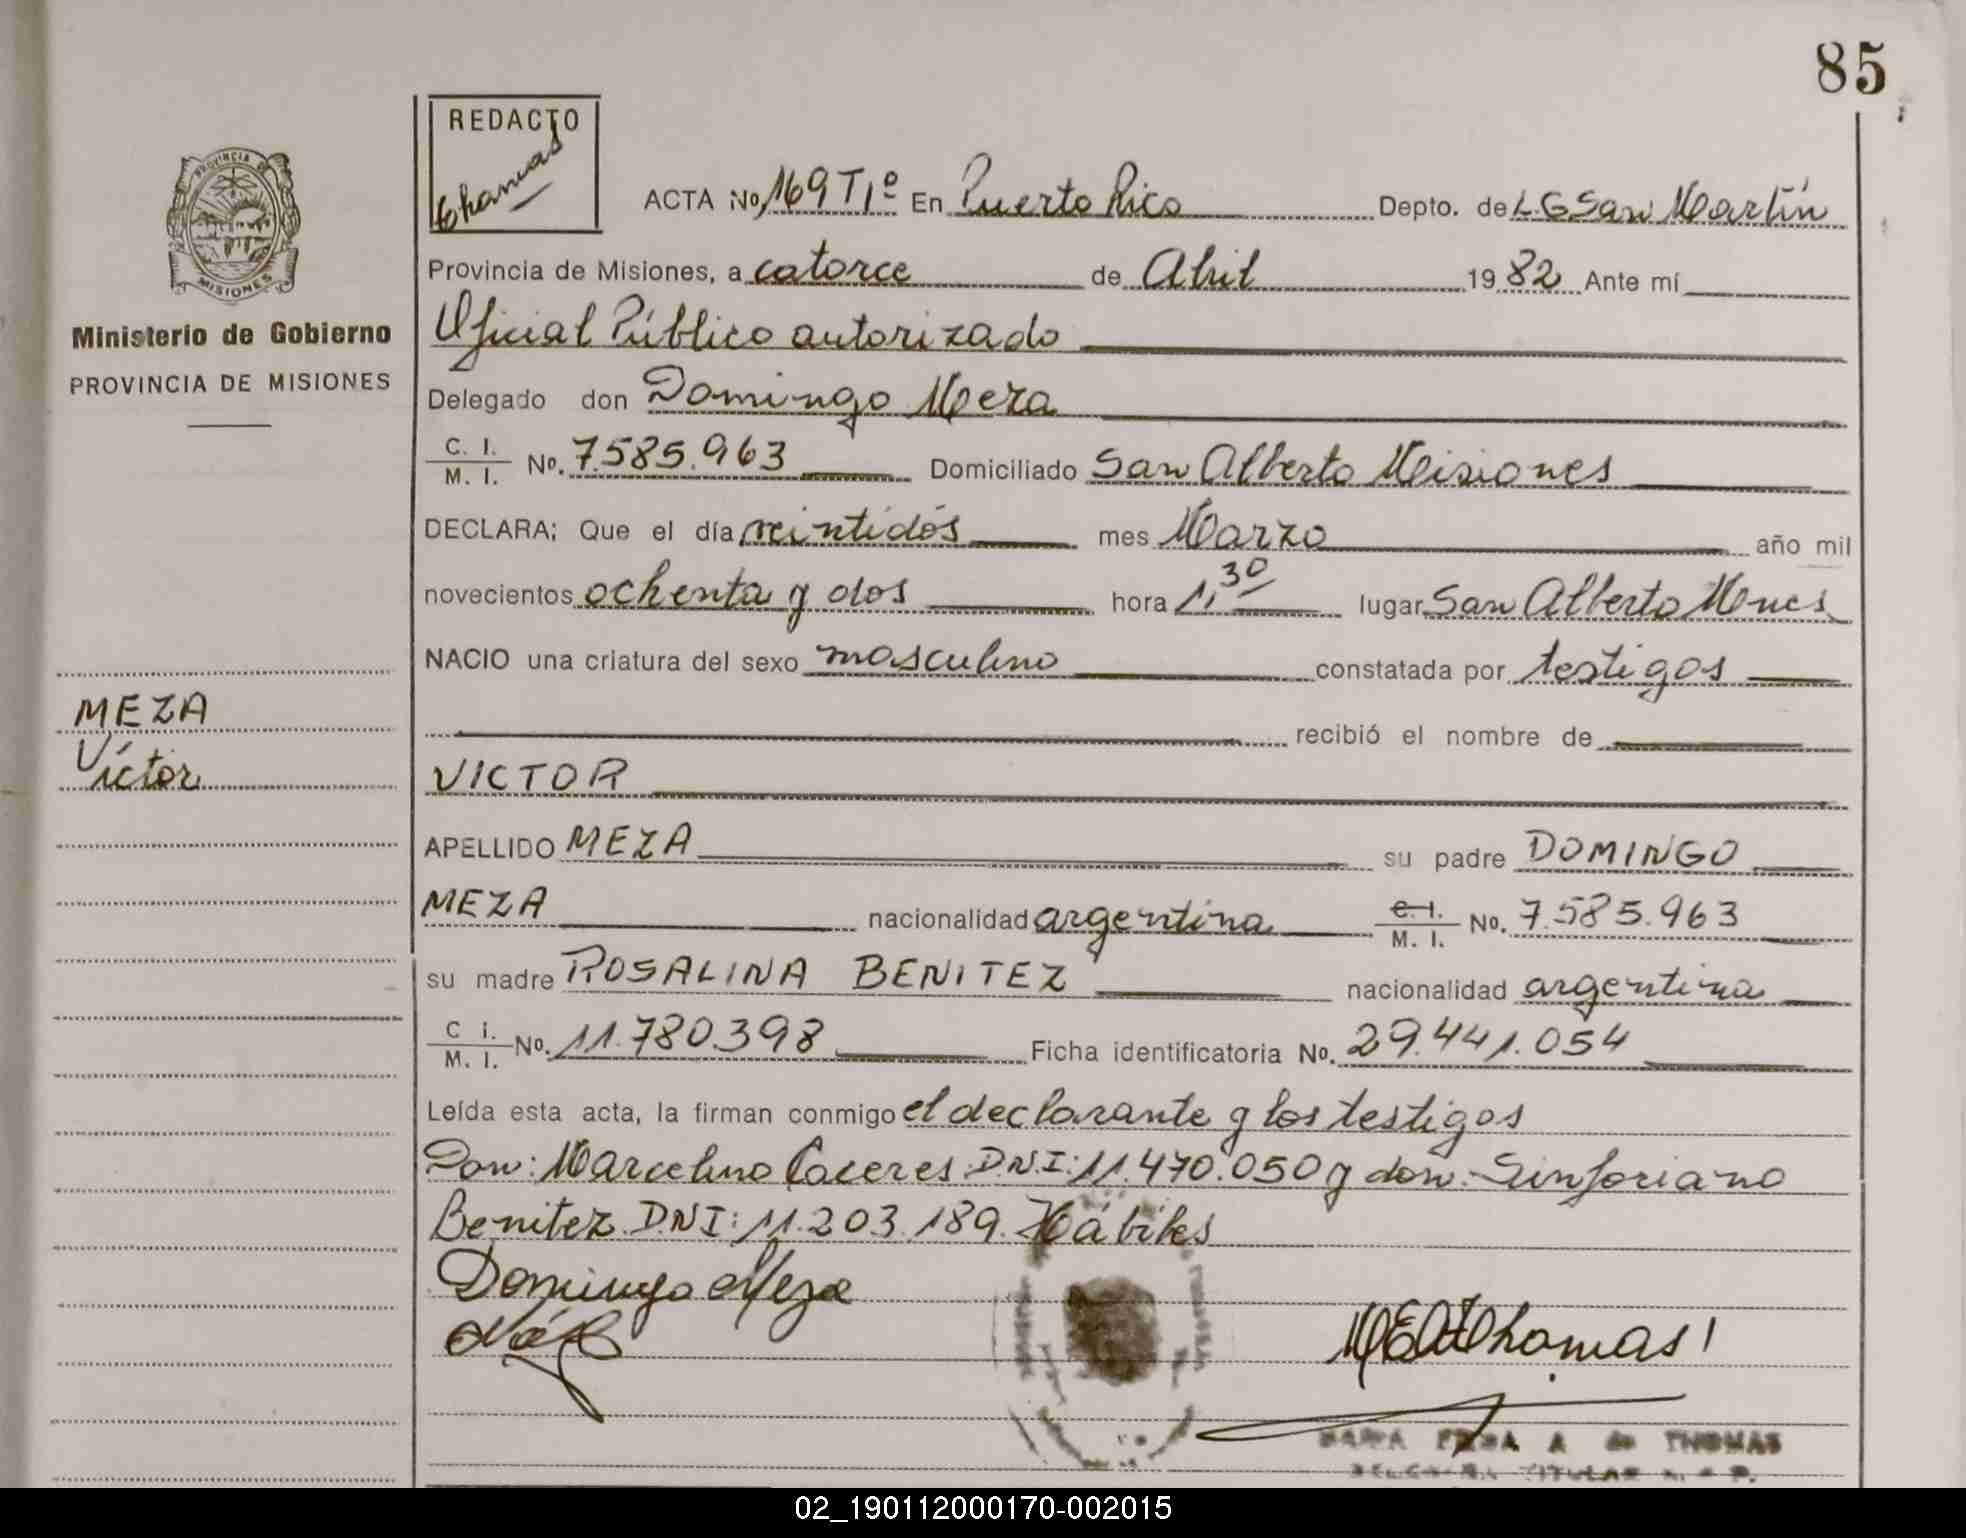 85
REDACTO
Thomas
ACTA No, 169 T1º En Puerto Rico Depto. de L. G San Martín
PROVINCIA DE
MISIONES
Ministerio de Gobierno
PROVINCIA DE MISIONES
Provincia de Misiones, a catorce de Abril 1982 Ante mí
Oficial Público autorizado
Delegado don Domingo Meza
C. I.
M. I. No. 7.585.963 Domiciliado San Alberto Misiones
DECLARA; Que el día veintidós mes Marzo año mil
novecientos ochenta y dos hora 1,30 lugar San Alberto Mnes
NACIO una criatura del sexo masculino constatada por testigos
recibió el nombre de
MEZA
Víctor
VICTOR
APELLIDO MEZA su padre DOMINGO
MEZA nacionalidad argentina C. I. M. I. No. 7.585.963
su madre ROSALINA BENITEZ nacionalidad argentina
C I.
M. I. No. 11.780.398 Ficha identificatoria No. 29.441.054
Leída esta acta, la firman conmigo el declarante y los testigos
Don: Marcelino Caceres D.N.I: 11.470.050 y don. Sinforiano
Benitez. D.N.I: 11.203.189. Hábiles
Domingo Meza
Thomas
MARIA A de THOMAS
TITULAR
02_190112000170-002015